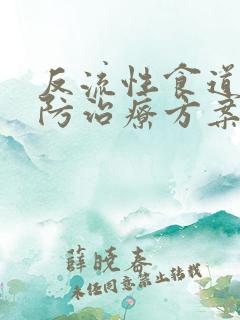 反流性食道
防治療方案
薛曉春
未经同意禁止转载